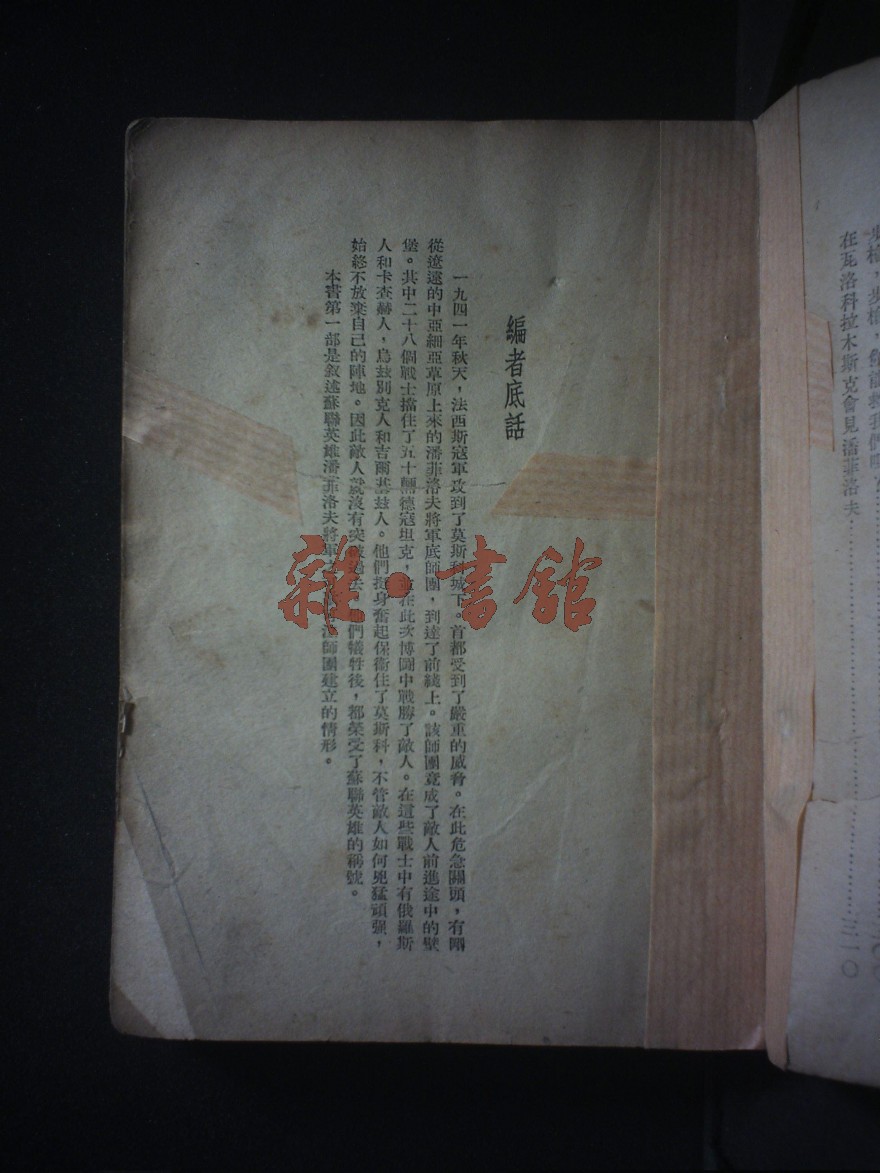 編者底話
一九四一年秋天，法西斯寇軍攻到了莫斯科城下。首都受到了嚴重的威脅。在此危急關頭，有剛
從遼遠的中亞細亞草原上來的潘菲洛夫將軍底師團，到達了前綫上。該師團竟成了敵人前進途中的壁
堡。其中二十八個戰士擋住了五十輛德寇坦克，並在此次博鬭中戰勝了敵人。在這些戰士中有俄羅斯
人和卡查赫人，烏茲別克人和吉爾基茲人。他們挺身奮起保衞住了莫斯科，不管敵人如何兇猛頑强，
始終不放棄自己的陣地。因此敵人就沒有突破過去。他們犧牲後，都榮受了蘇聯英雄的稱號。
本書第一部是叙述蘇聯英雄潘菲洛夫將軍 師團建立的情形。
雜·書館
在瓦洛科拉木斯克會見潘菲洛夫
三一〇